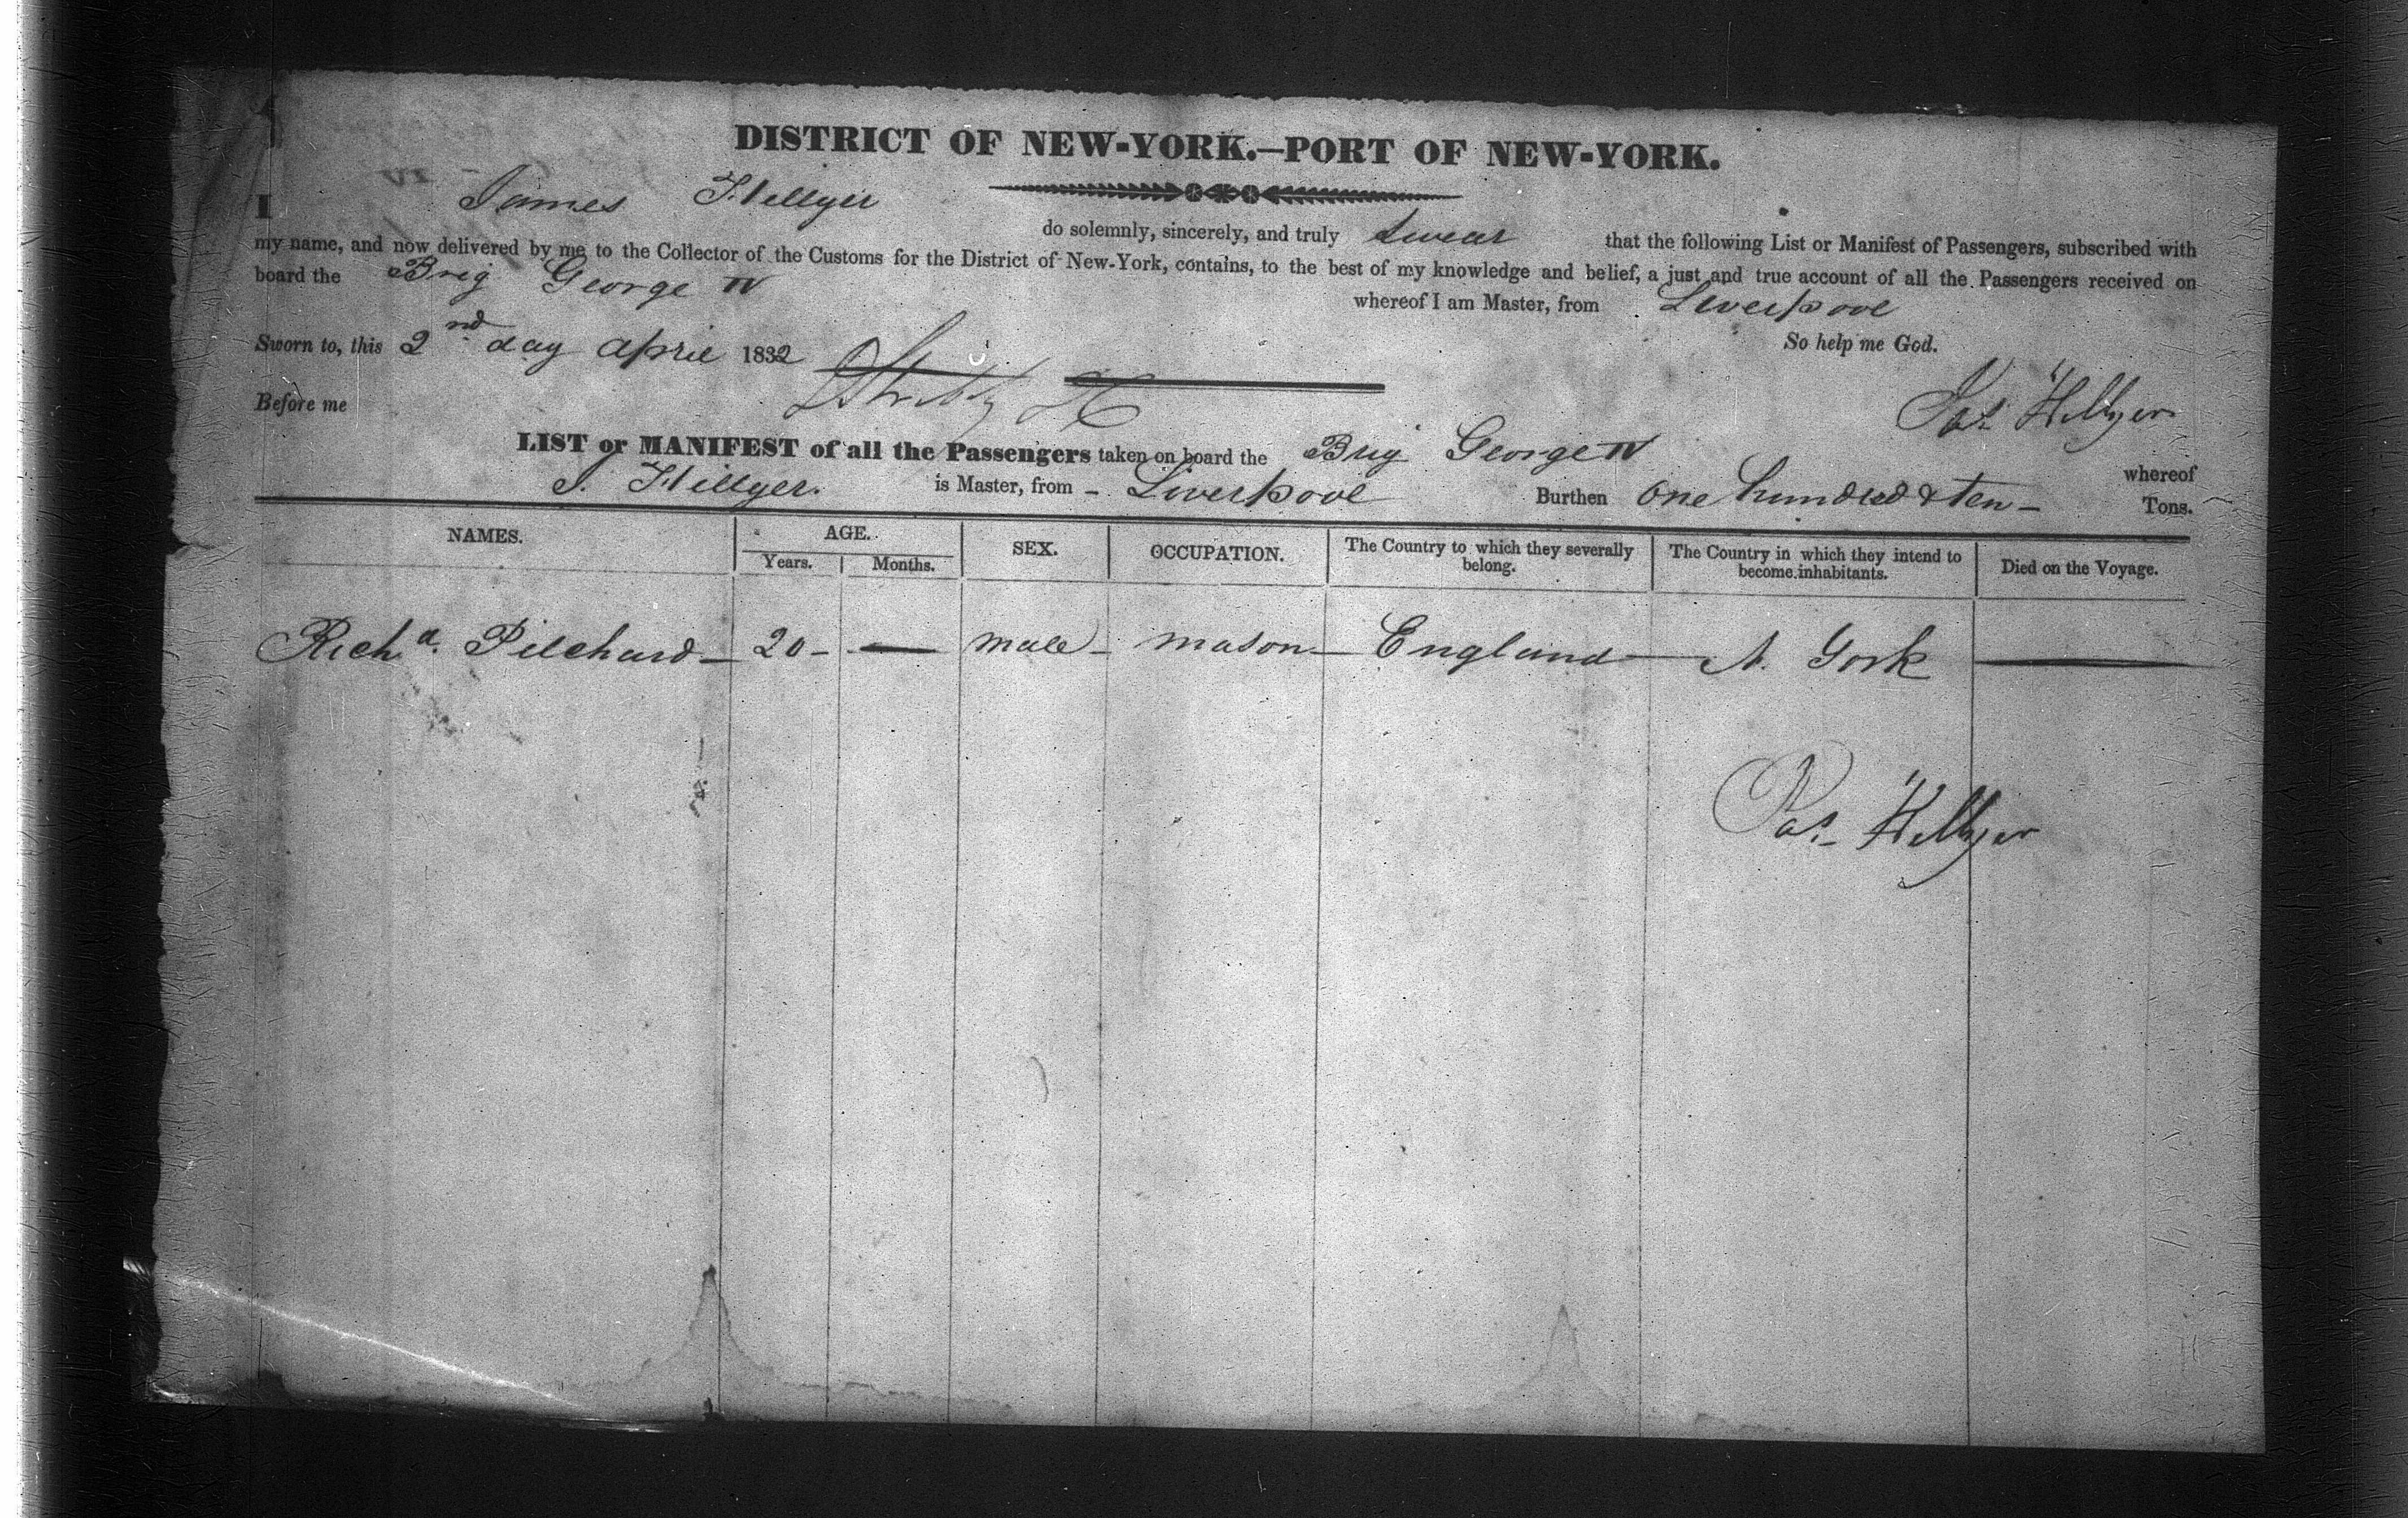 DISTRICT OF NEW-YORK.—PORT OF NEW-YORK.
I James Hillyer do solemnly, sincerely, and truly Swear that the following List or Manifest of Passengers, subscribed with
my name, and now delivered by me to the Collector of the Customs for the District of New-York, contains, to the best of my knowledge and belief, a just and true account of all the Passengers received on
board the Brig George IV whereof I am Master, from Liverpool
So help me God.
Sworn to, this 2nd day april 1832
Before me
Jas Hillyer
LIST or MANIFEST of all the Passengers taken on board the Brig George IV whereof
J. Hillyer. is Master, from - Liverpool Burthen One hundred & ten - Tons.
NAMES. AGE. SEX. OCCUPATION. The Country to which they severally belong. The Country in which they intend to become inhabitants. Died on the Voyage.
Years. Months.
Richd. Pilchard — 20 - — male - mason — England — N. York —
Jas Hillyer